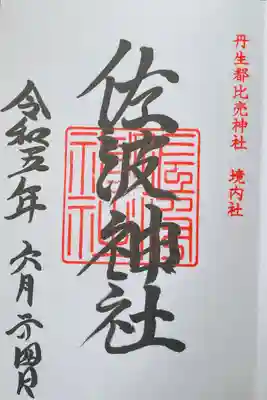 丹生都比売神社 境内社
佐波神社
令和五年 六月 二十四日